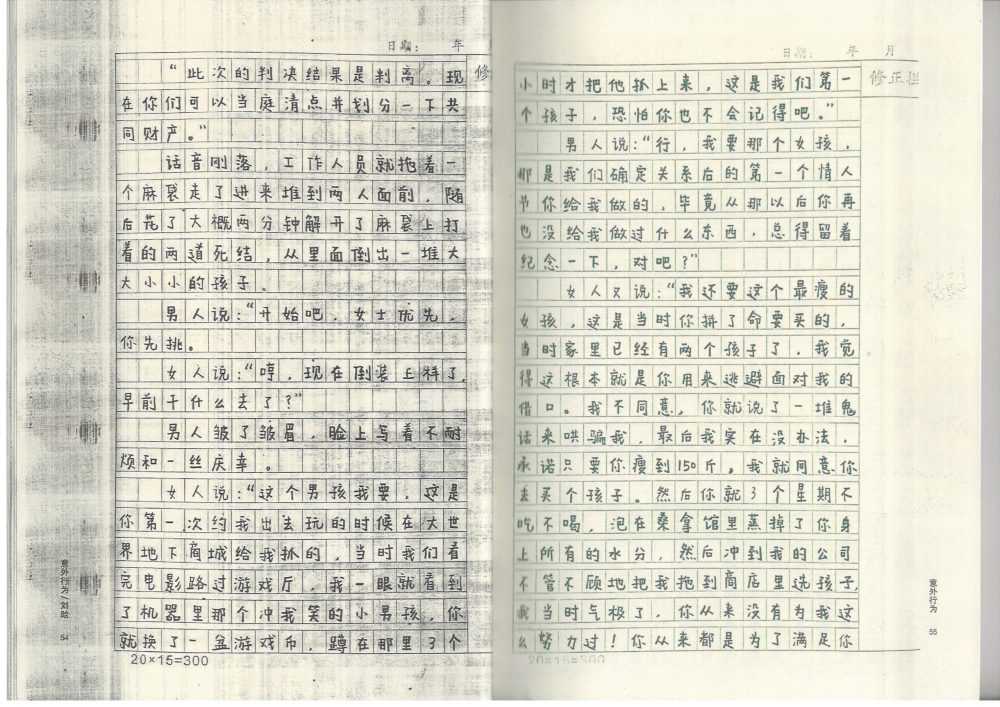 日期： 年
“此次的判决结果是判离。现
修
在你们可以当庭清点并划分一下共
同财产。”
话音刚落，工作人员就拖着一
个麻袋走了进来堆到两人面前，随
后花了大概两分钟解开了麻袋上打
着的两道死结，从里面倒出一堆大
大小小的孩子。
男人说：“开始吧，女士优先，
你先挑。
女人说：“哼，现在倒装上样了，
早前干什么去了？”
男人皱了皱眉，脸上写着不耐
烦和一丝庆幸。
女人说：“这个男孩我要，这是
你第一次约我出去玩的时候在大世
界地下商城给我抓的，当时我们看
完电影路过游戏厅，我一眼就看到
了机器里那个冲我笑的小男孩，你
就换了一盆游戏币，蹲在那里3个
20×15=300
意外行为/刘晗
54
日期： 年 月
修正栏
小时才把他抓上来，这是我们第一
个孩子，恐怕你也不会记得吧。”
男人说：“行，我要那个女孩，
那是我们确定关系后的第一个情人
节你给我做的，毕竟从那以后你再
也没给我做过什么东西，总得留着
纪念一下，对吧？”
女人又说：“我还要这个最瘦的
女孩，这是当时你拼了命要买的，
当时家里已经有两个孩子了，我觉
得这根本就是你用来逃避面对我的
借口。我不同意，你就说了一堆鬼
话来哄骗我，最后我实在没办法，
承诺只要你瘦到150斤，我就同意你
去买个孩子。然后你就3个星期不
吃不喝，泡在桑拿馆里蒸掉了你身
上所有的水分，然后冲到我的公司
不管不顾地把我拖到商店里选孩子，
我当时气极了，你从来没有为我这
么努力过！你从来都是为了满足你
20×15=300
意外行为
55